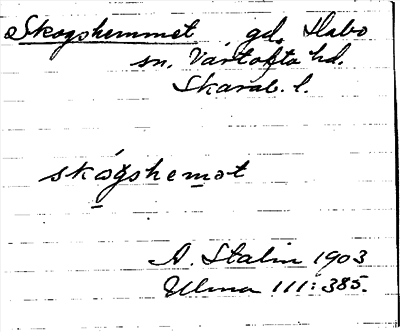 Skogshemmet gd, Habo
sn. Vartofta hd.
Skarab. l.
skógshemot
A. Stalin 1903
Ulma 111:385.